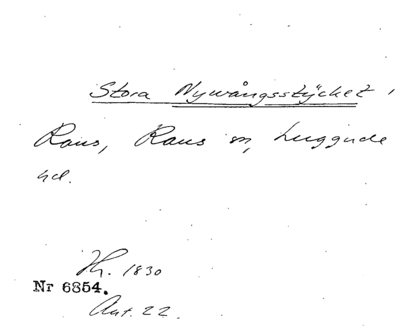 Stora Nywångsstycket,
Raus, Raus sn, Luggude
hd.
Hy. 1830
Nr 6854.
Akt. 22.